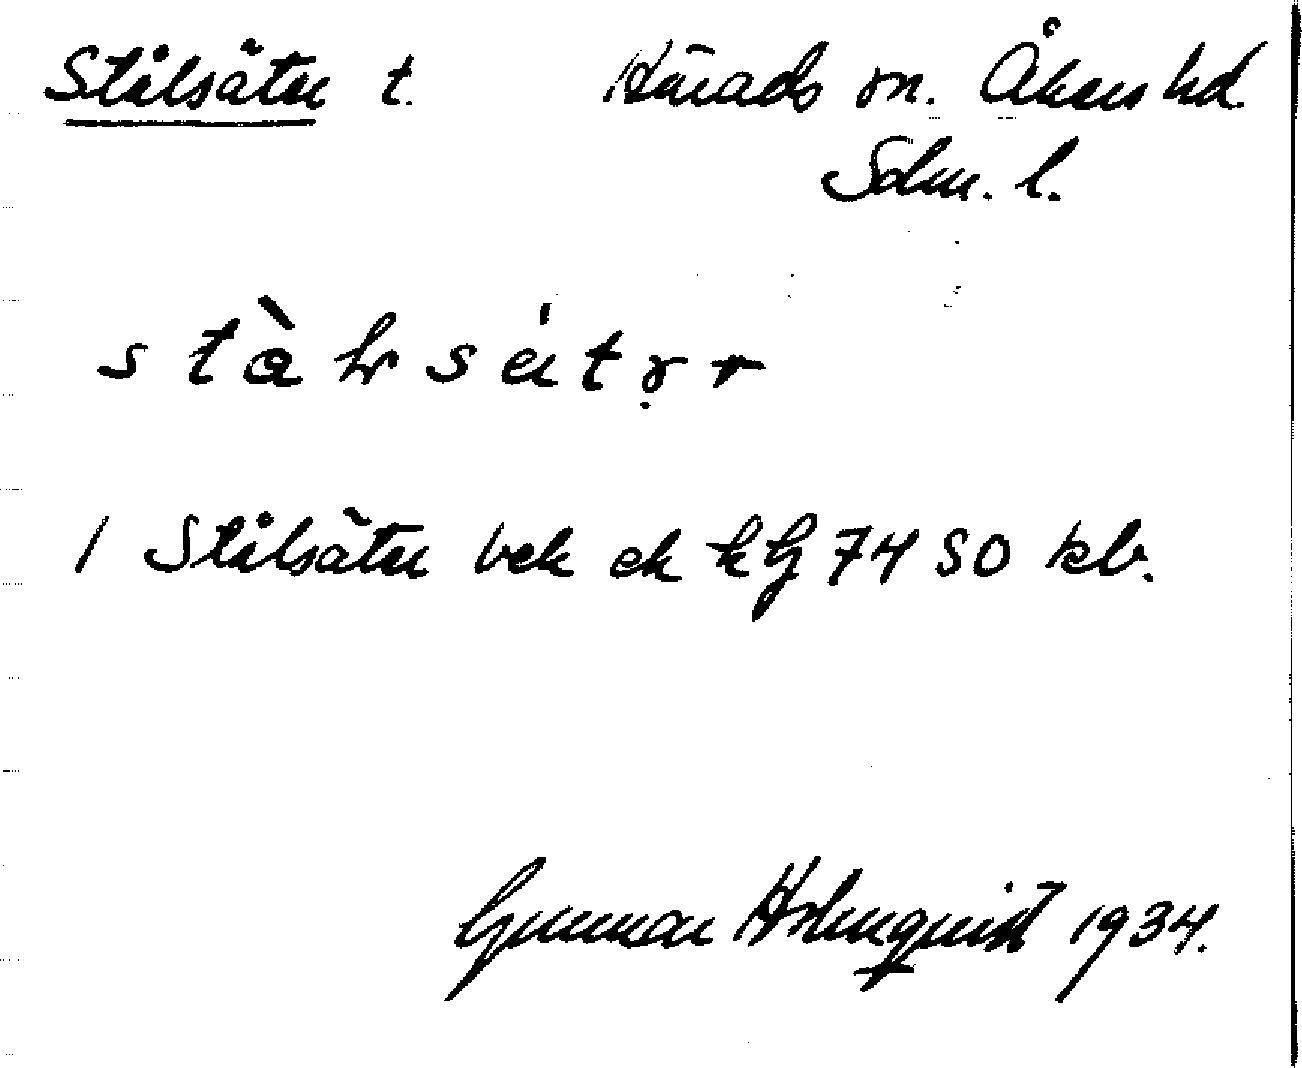 Stålsäter t. Härads sn. Åkers hd.
Södm. l.
1 Stålsäter bek ek kG 7450 kb.
Gunnar Holmquist 1934.